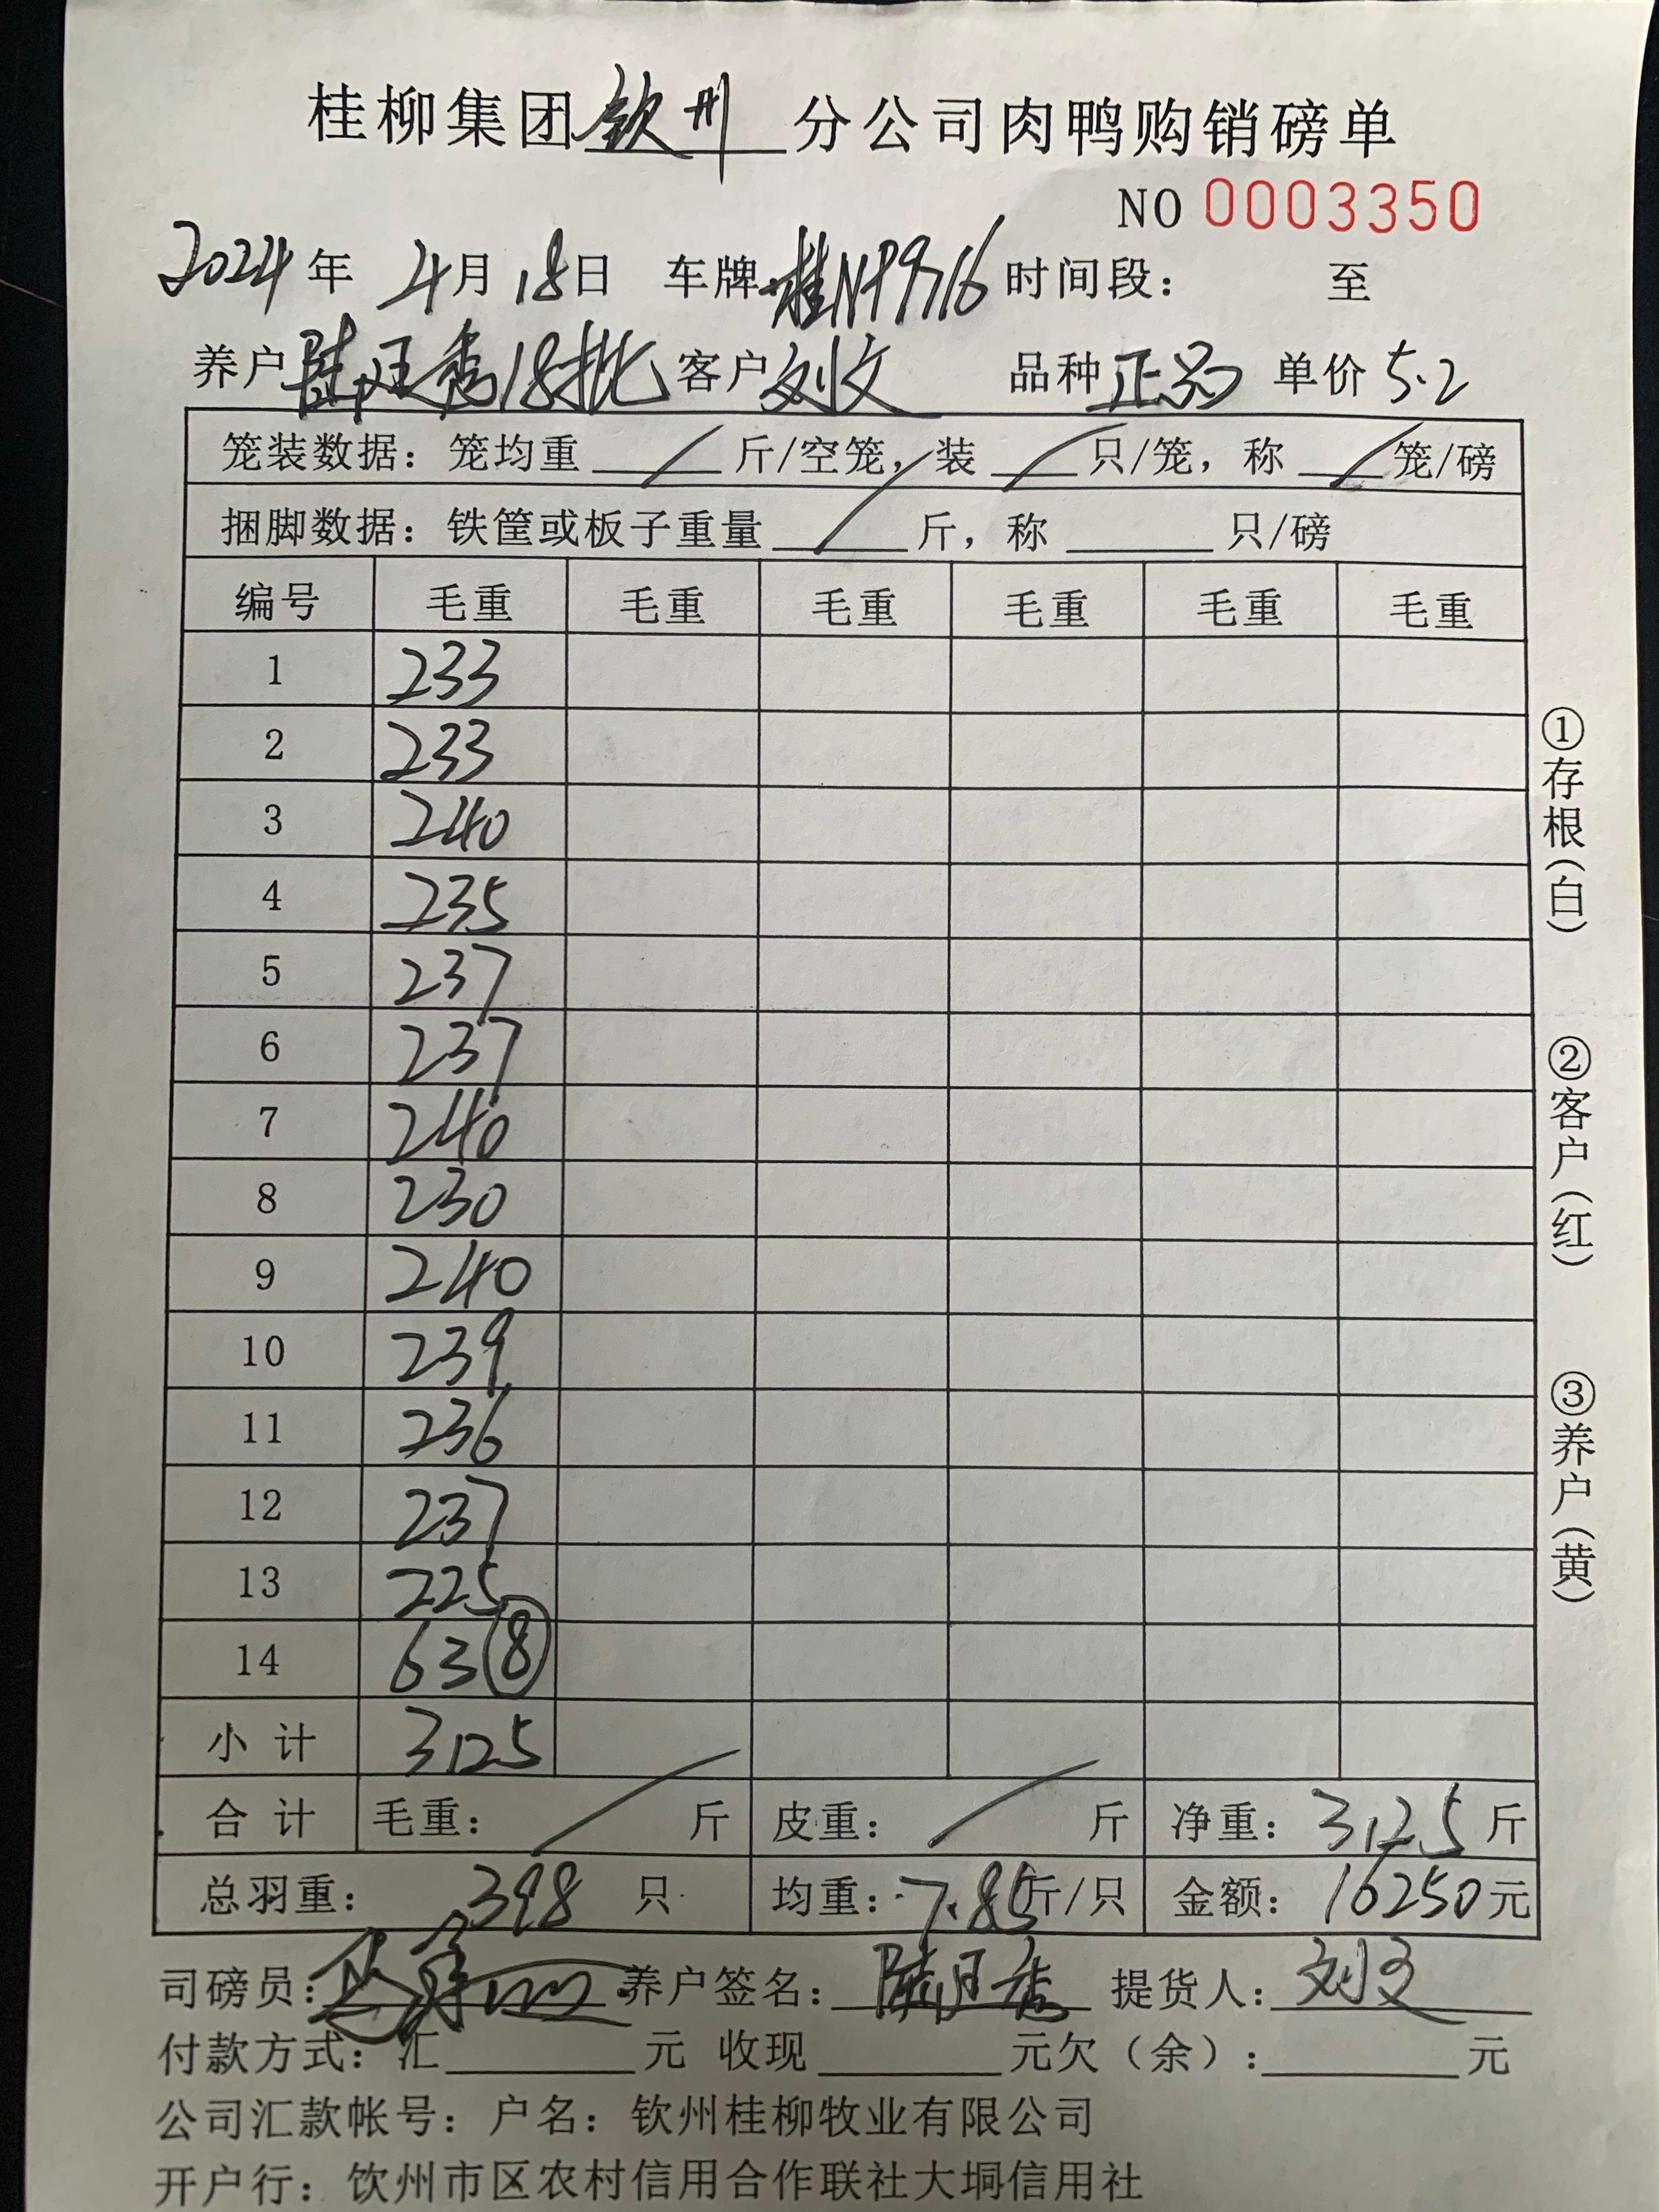 桂柳集团钦州分公司肉鸭购销磅单
NO 0003350
2024年 4月 18日 车牌桂NP9716 时间段: 至
养户陆旺秀18批 客户刘文 品种正品 单价5.2
笼装数据: 笼均重 / 斤/空笼, 装 / 只/笼, 称 / 笼/磅
捆脚数据: 铁筐或板子重量 / 斤, 称 只/磅
编号 毛重 毛重 毛重 毛重 毛重 毛重
1 233
2 233
3 240
4 235
5 237
6 237
7 240
8 230
9 240
10 239
11 236
12 237
13 225
14 63 ⑧
小计 3125
合计 毛重: / 斤 皮重: / 斤 净重: 3125 斤
总羽重: 398 只 均重: 7.85 斤/只 金额: 16250元
司磅员: 养户签名: 陆旺秀 提货人: 刘文
付款方式: 汇 元 收现 元欠(余): 元
公司汇款帐号: 户名: 钦州桂柳牧业有限公司
开户行: 钦州市区农村信用合作联社大垌信用社
①存根(白)
②客户(红)
③养户(黄)